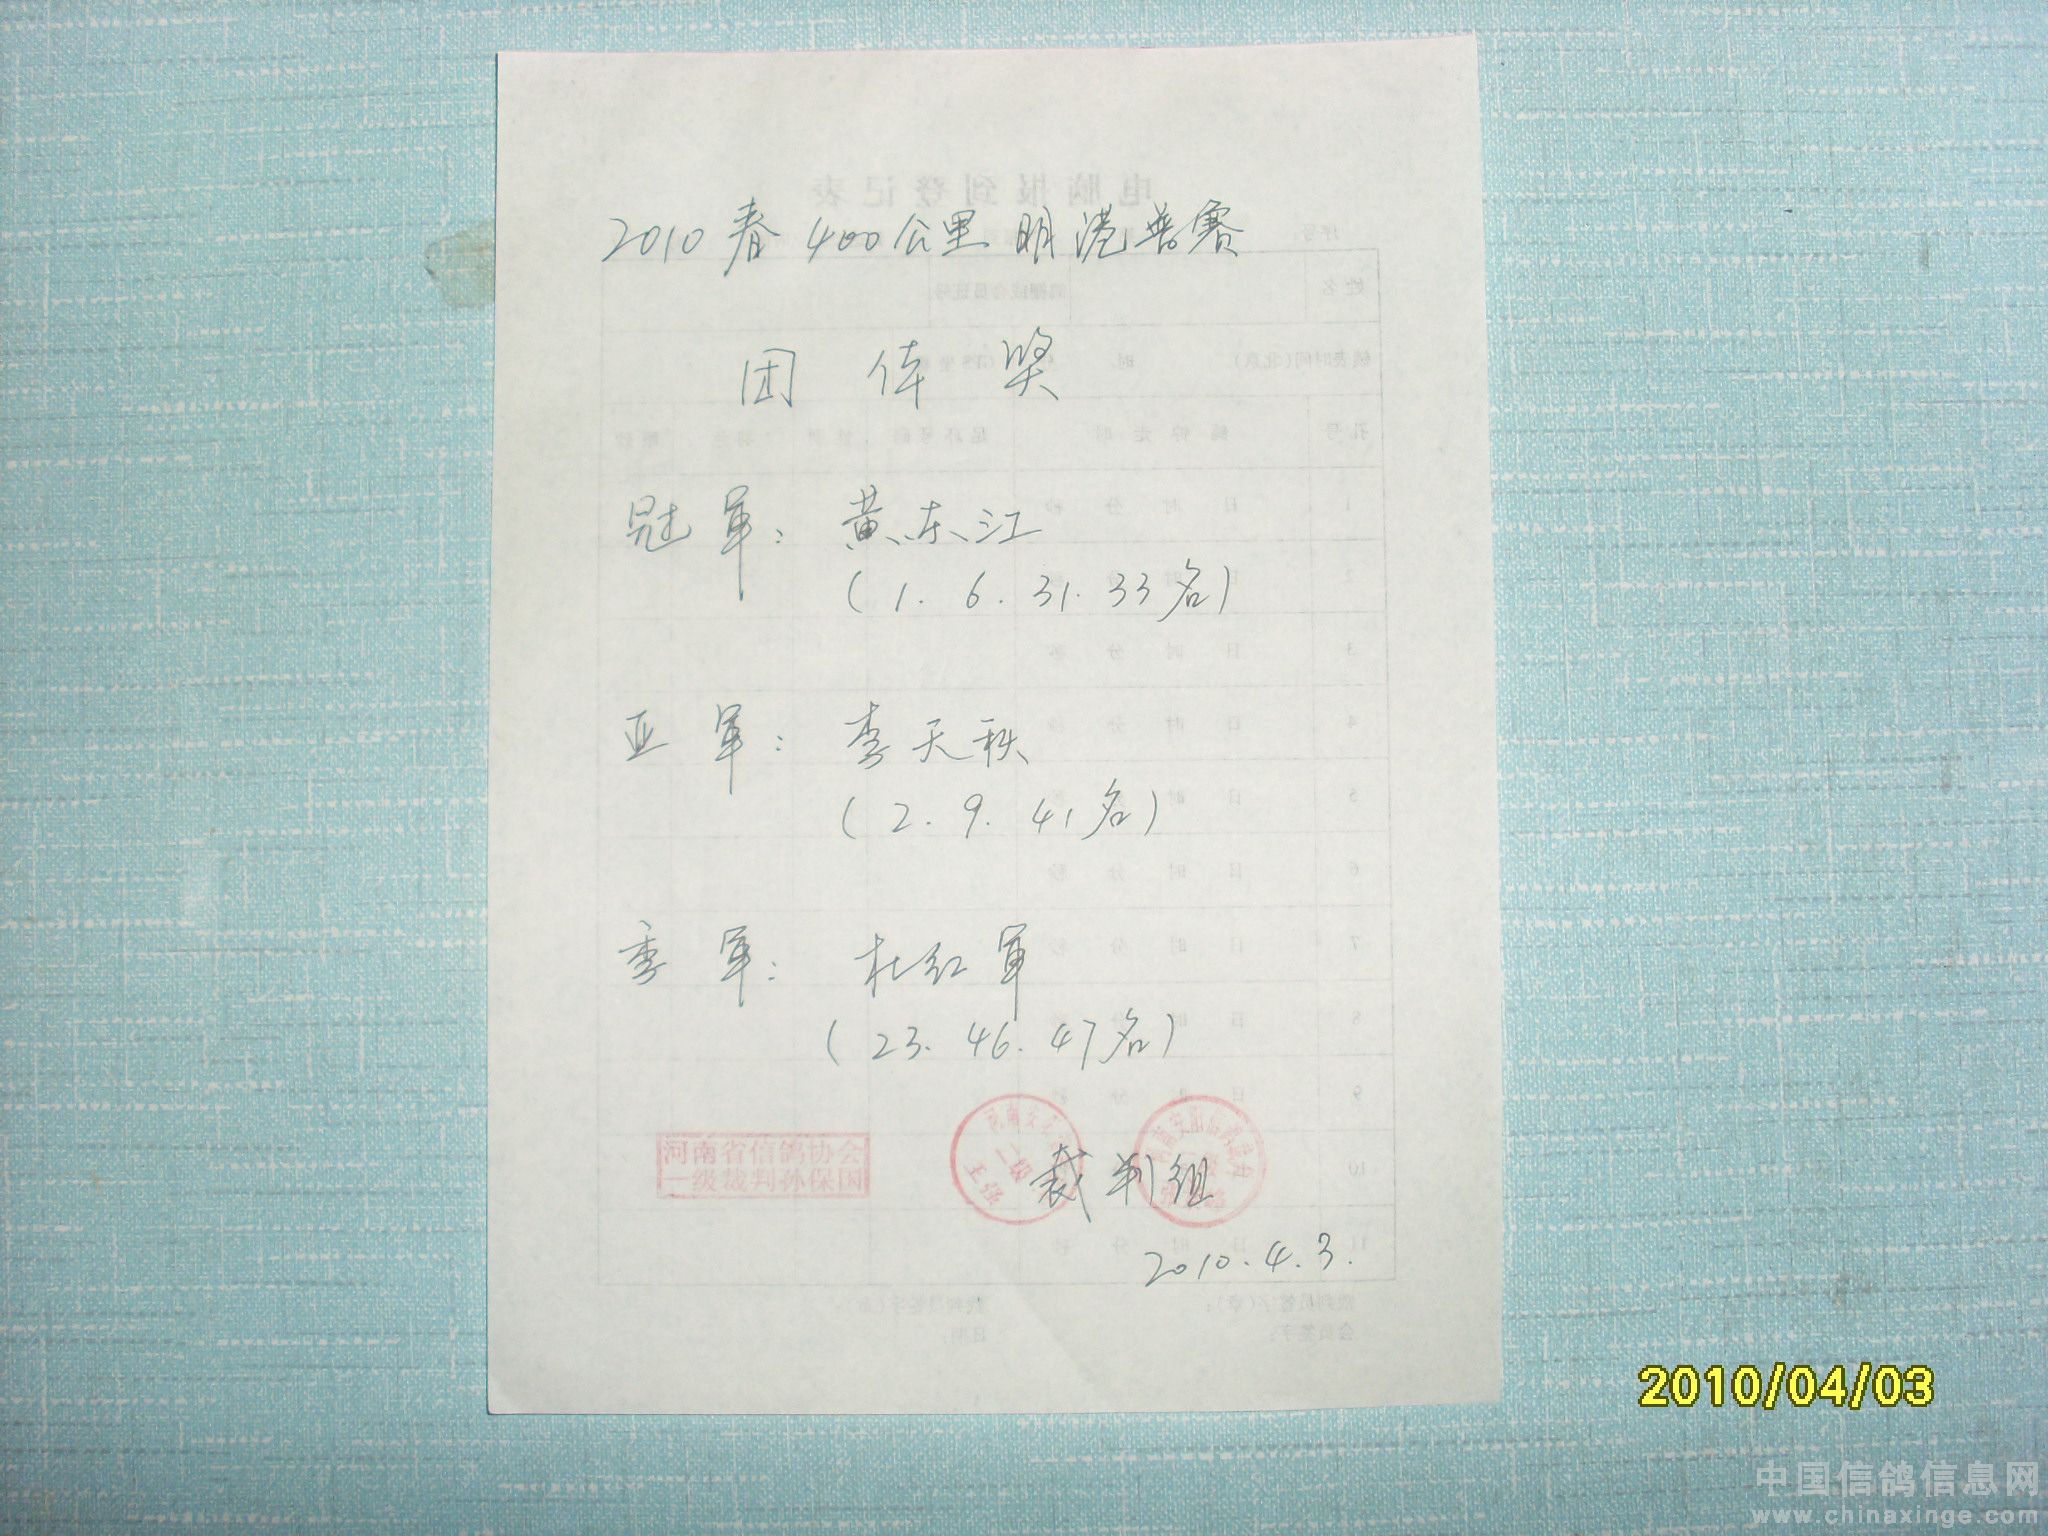 2010春400公里明港普赛
团体奖
冠军：黄东江
(1. 6. 31. 33名)
亚军：李天秩
(2. 9. 41名)
季军：杜红军
(23. 46. 47名)
河南省信鸽协会
一级裁判孙保国
二级
王强
裁判组
2010.4.3.
2010/04/03
中国信鸽信息网
www.chinaxinge.com